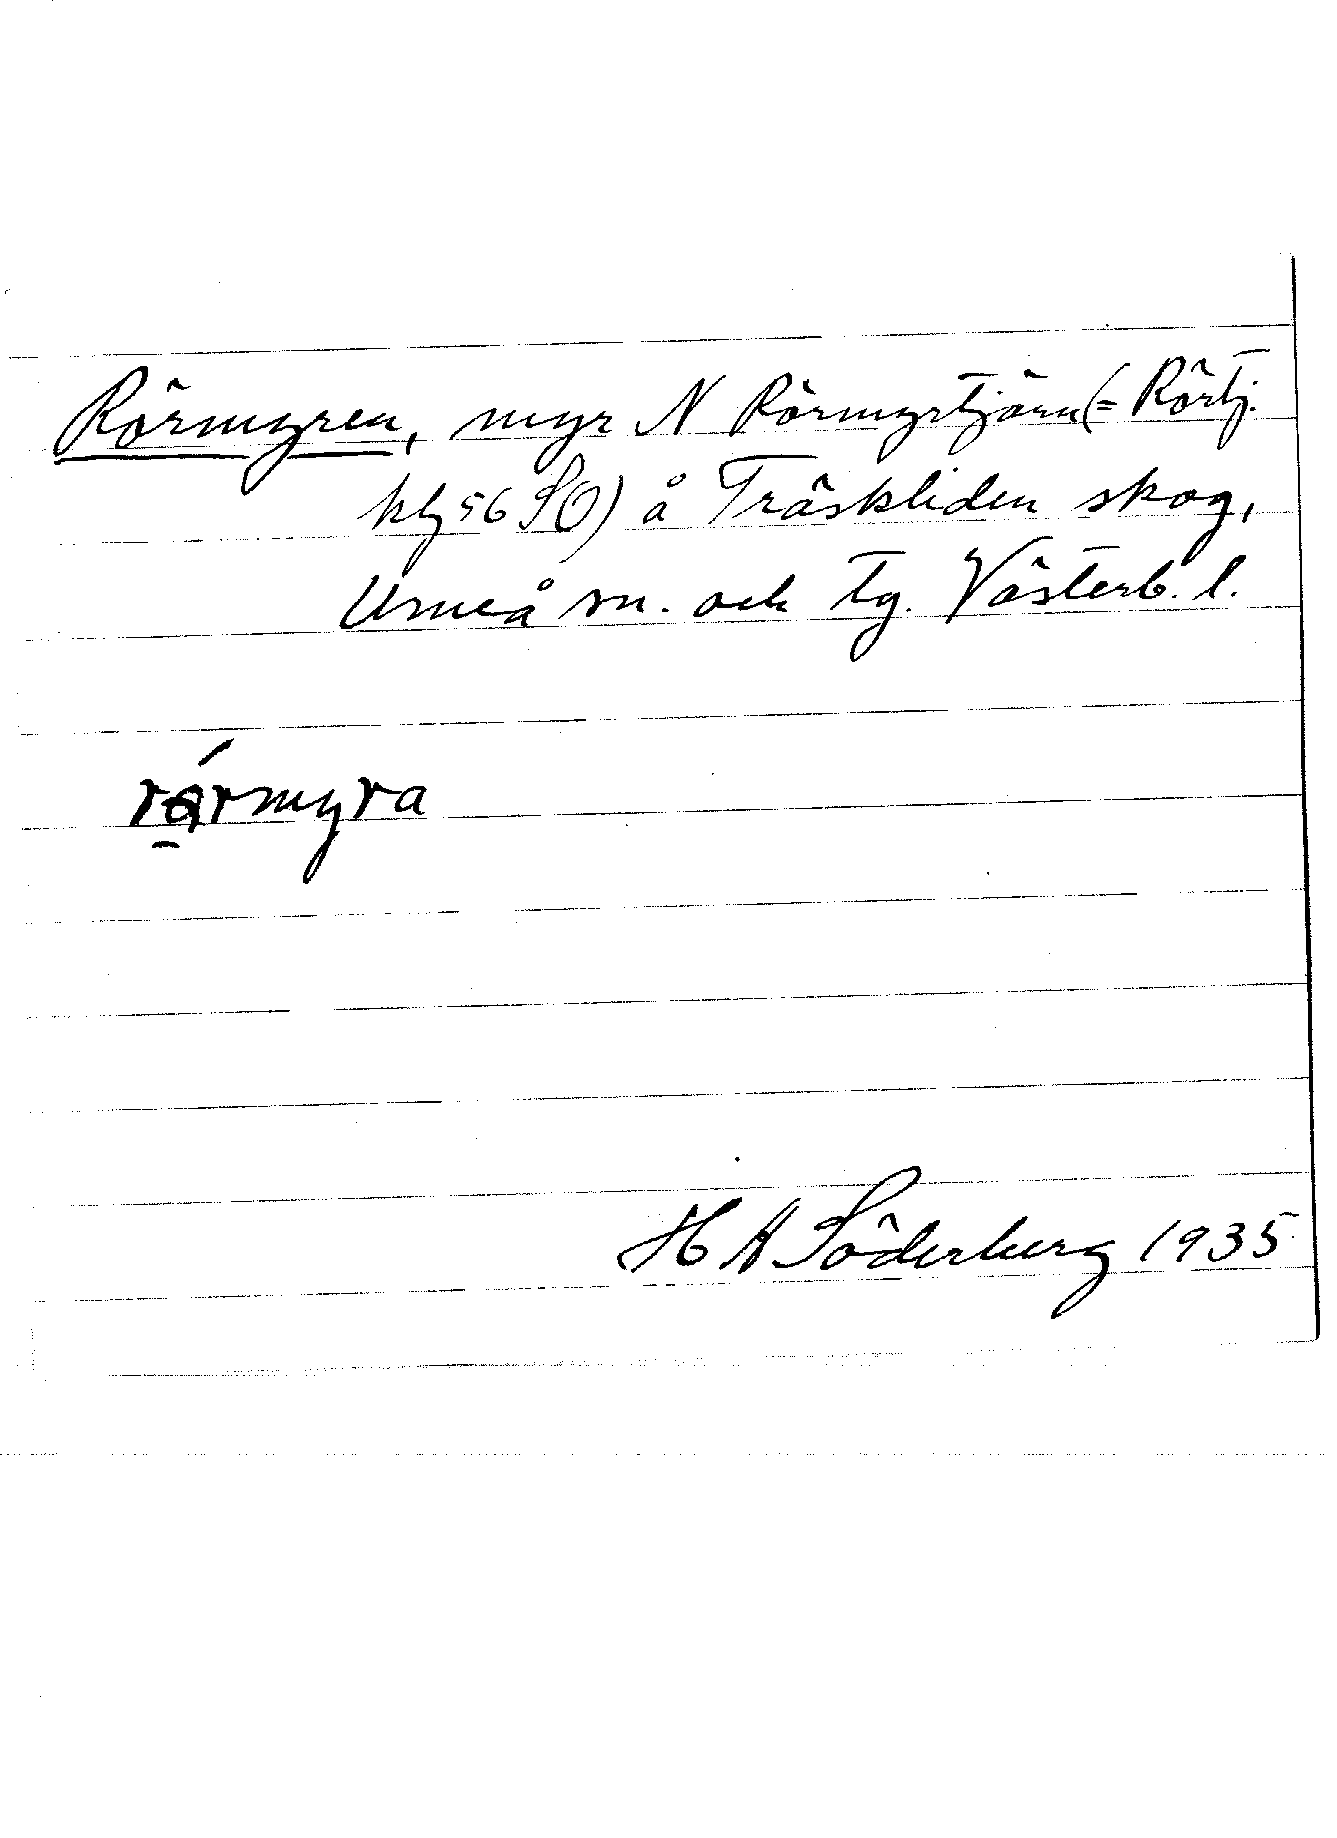 Rörmyren, myr N Rörmyrtjärn (= Rörtj.
kbl 56 SO) å Träskliden skog,
Umeå sn. och tg. Västerb. l.
rörmyra
H A Söderberg 1935